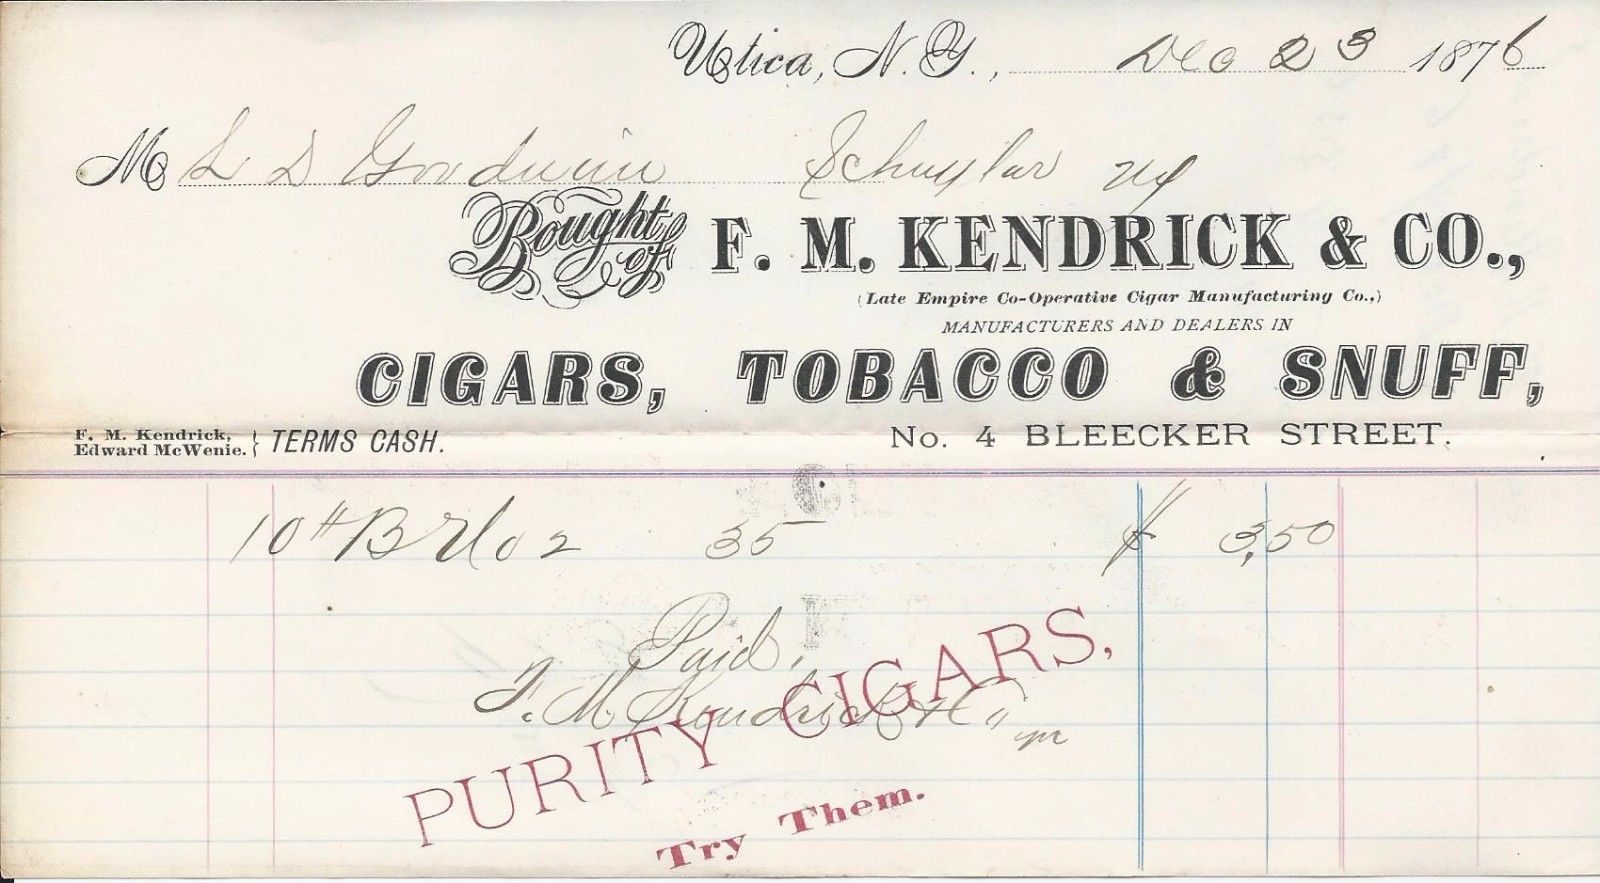 Utica, N. Y., Dec 23 1876
M L D Goodwin Schuylar NY
Bought of F. M. KENDRICK & CO.,
(Late Empire Co-Operative Cigar Manufacturing Co.,)
MANUFACTURERS AND DEALERS IN
CIGARS, TOBACCO & SNUFF,
F. M. Kendrick,
Edward McWenie. } TERMS CASH.
No. 4 BLEECKER STREET.
10 # 35 $ 3,50
Paid.
F. M. Kendrick & Co
PURITY CIGARS,
Try Them.